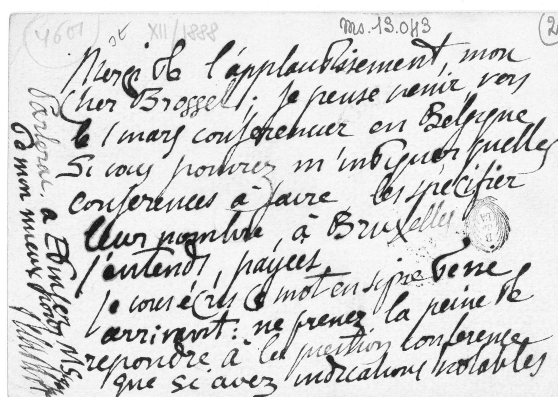 (4601)
XII/1888
Ms. 13.043
Merci de l'applaudissement, mon
cher Brosset; je pense venir vers
le 1 mars conférencier en Belgique
Si vous pouvez m'indiquer quelles
conférences à faire, les spécifier
leur nombre, à Bruxelles
j'entends, payées
Je vous écris ce mot en signe
arrivant: ne prenez la peine de
repondre à la question conférence
que si avez indications notables
Parlerai à
de mon mieux